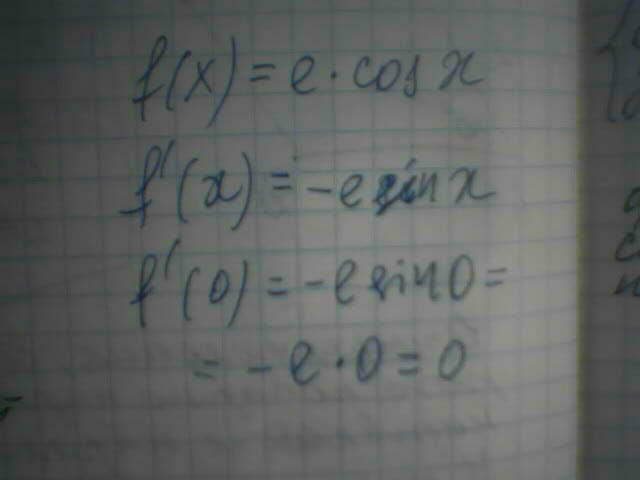 f(x) = e · cos x
f'(x) = -e sin x
f'(0) = -e sin 0 =
= -e · 0 = 0